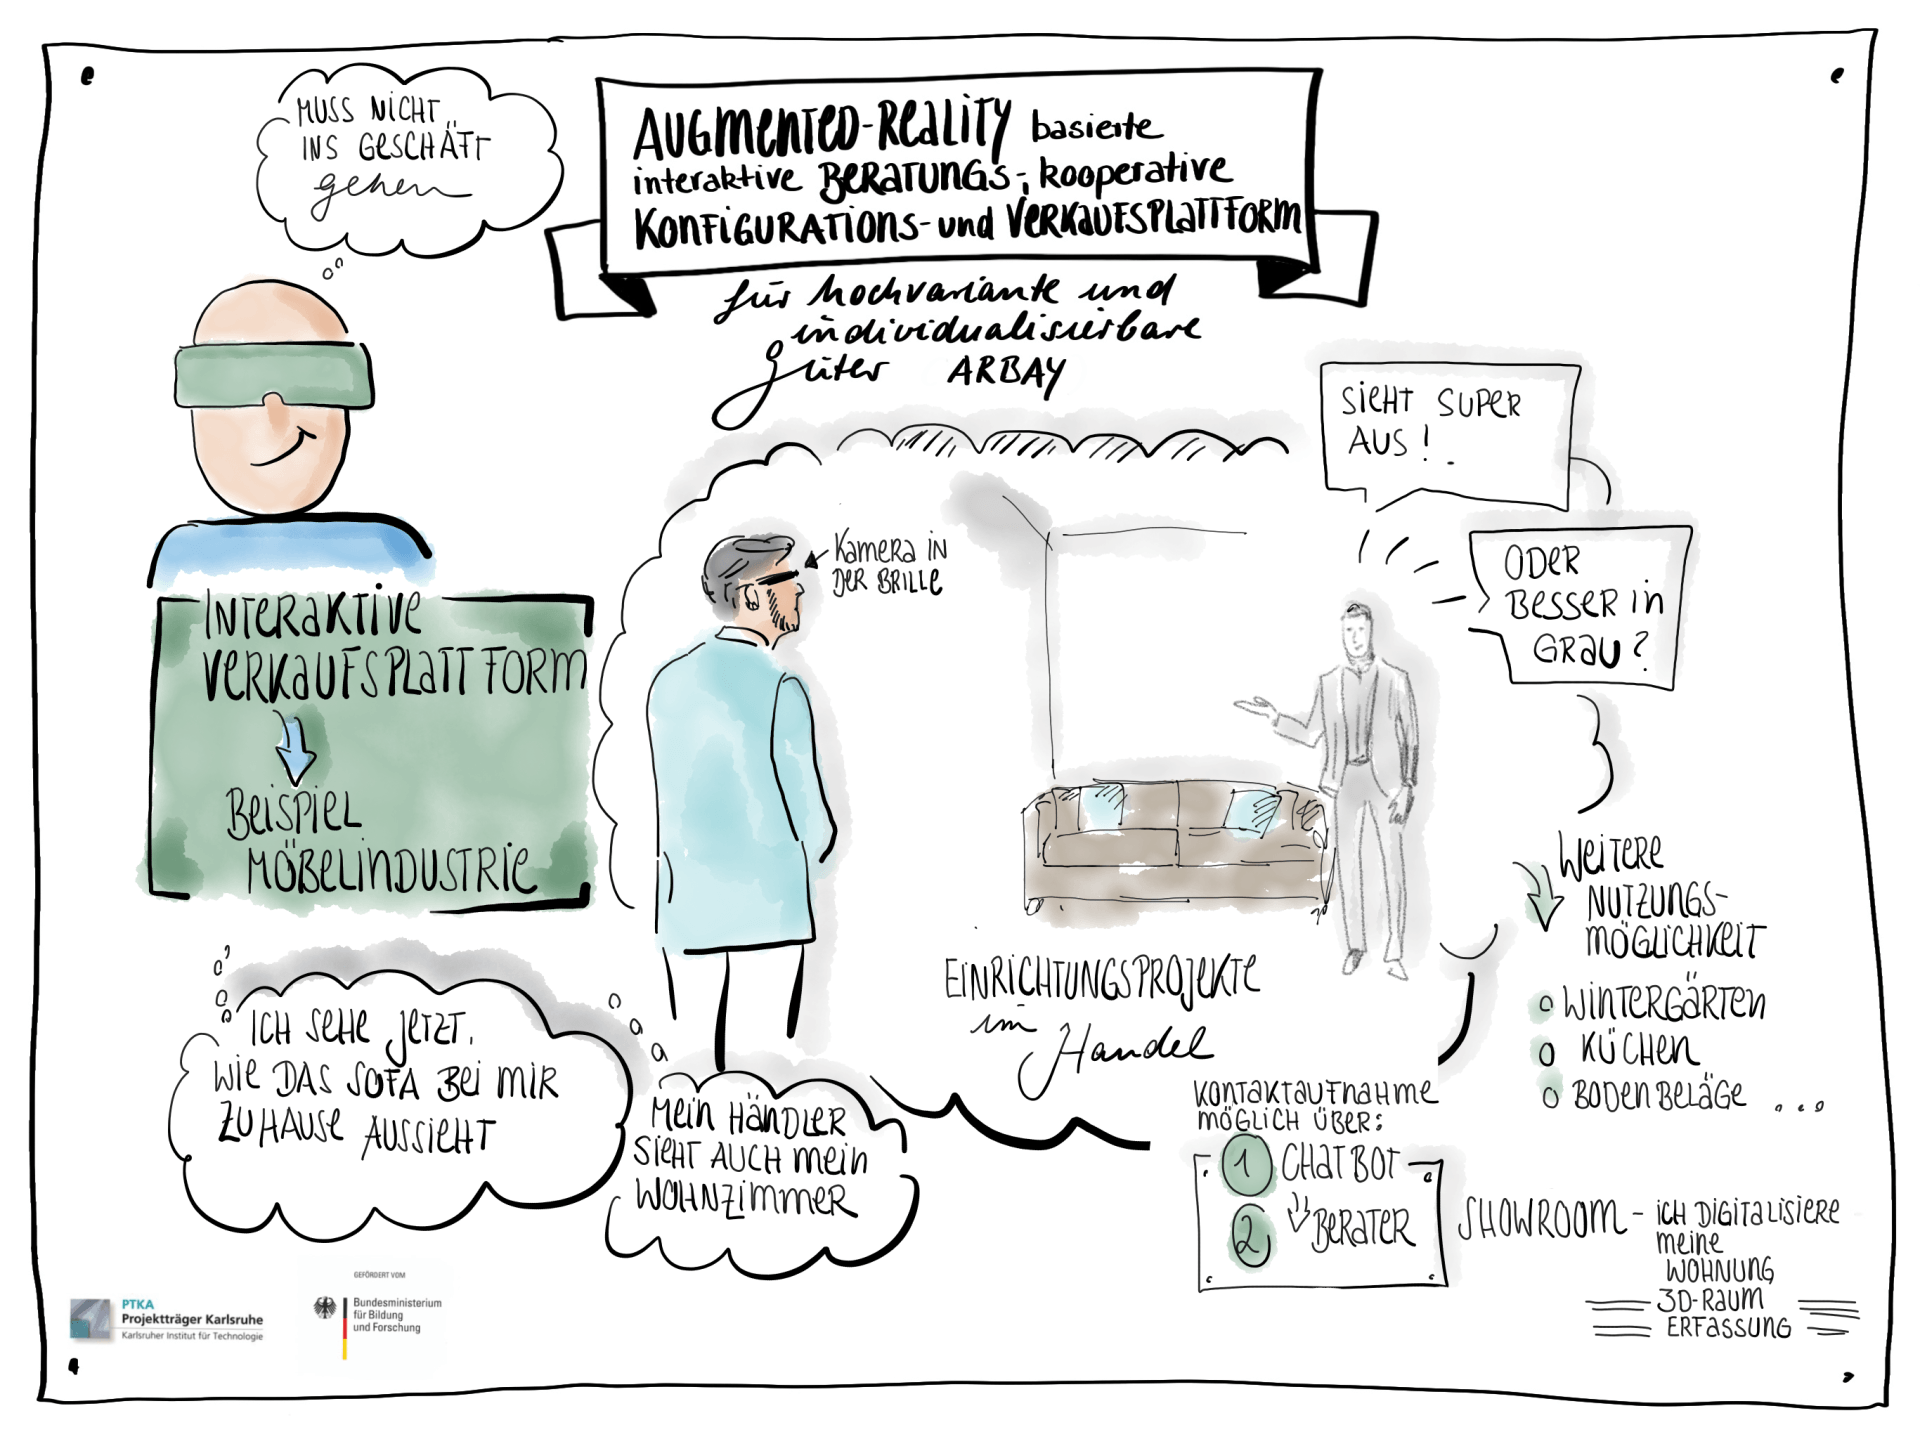 MUSS NICHT
INS GESCHÄFT
gehen
AUGMENTED-REALITY basierte
interaktive BERATUNGS-, kooperative
KONFIGURATIONS- und VERKAUFSPLATTFORM
für hochvariante und
individualisierbare
güter ARBAY
SIEHT SUPER
AUS!
ODER
BESSER in
GRAU?
KAMERA IN
DER BRILLE
INTERAKTIVE
VERKAUFSPLATTFORM
BEISPIEL
MÖBELINDUSTRIE
WEITERE
NUTZUNGS-
MÖGLICHKEIT
WINTERGÄRTEN
KÜCHEN
BODENBELÄGE ...
EINRICHTUNGSPROJEKTE
im
Handel
ICH SEHE JETZT,
WIE DAS SOFA BEI MIR
ZUHAUSE AUSSIEHT
MEIN HÄNDLER
SIEHT AUCH MEIN
WOHNZIMMER
KONTAKTAUFNAHME
MÖGLICH ÜBER:
1 CHATBOT
2 BERATER
SHOWROOM - ICH DIGITALISIERE
MEINE
WOHNUNG
3D-RAUM
ERFASSUNG
PTKA
Projektträger Karlsruhe
Karlsruher Institut für Technologie
GEFÖRDERT VOM
Bundesministerium
für Bildung
und Forschung